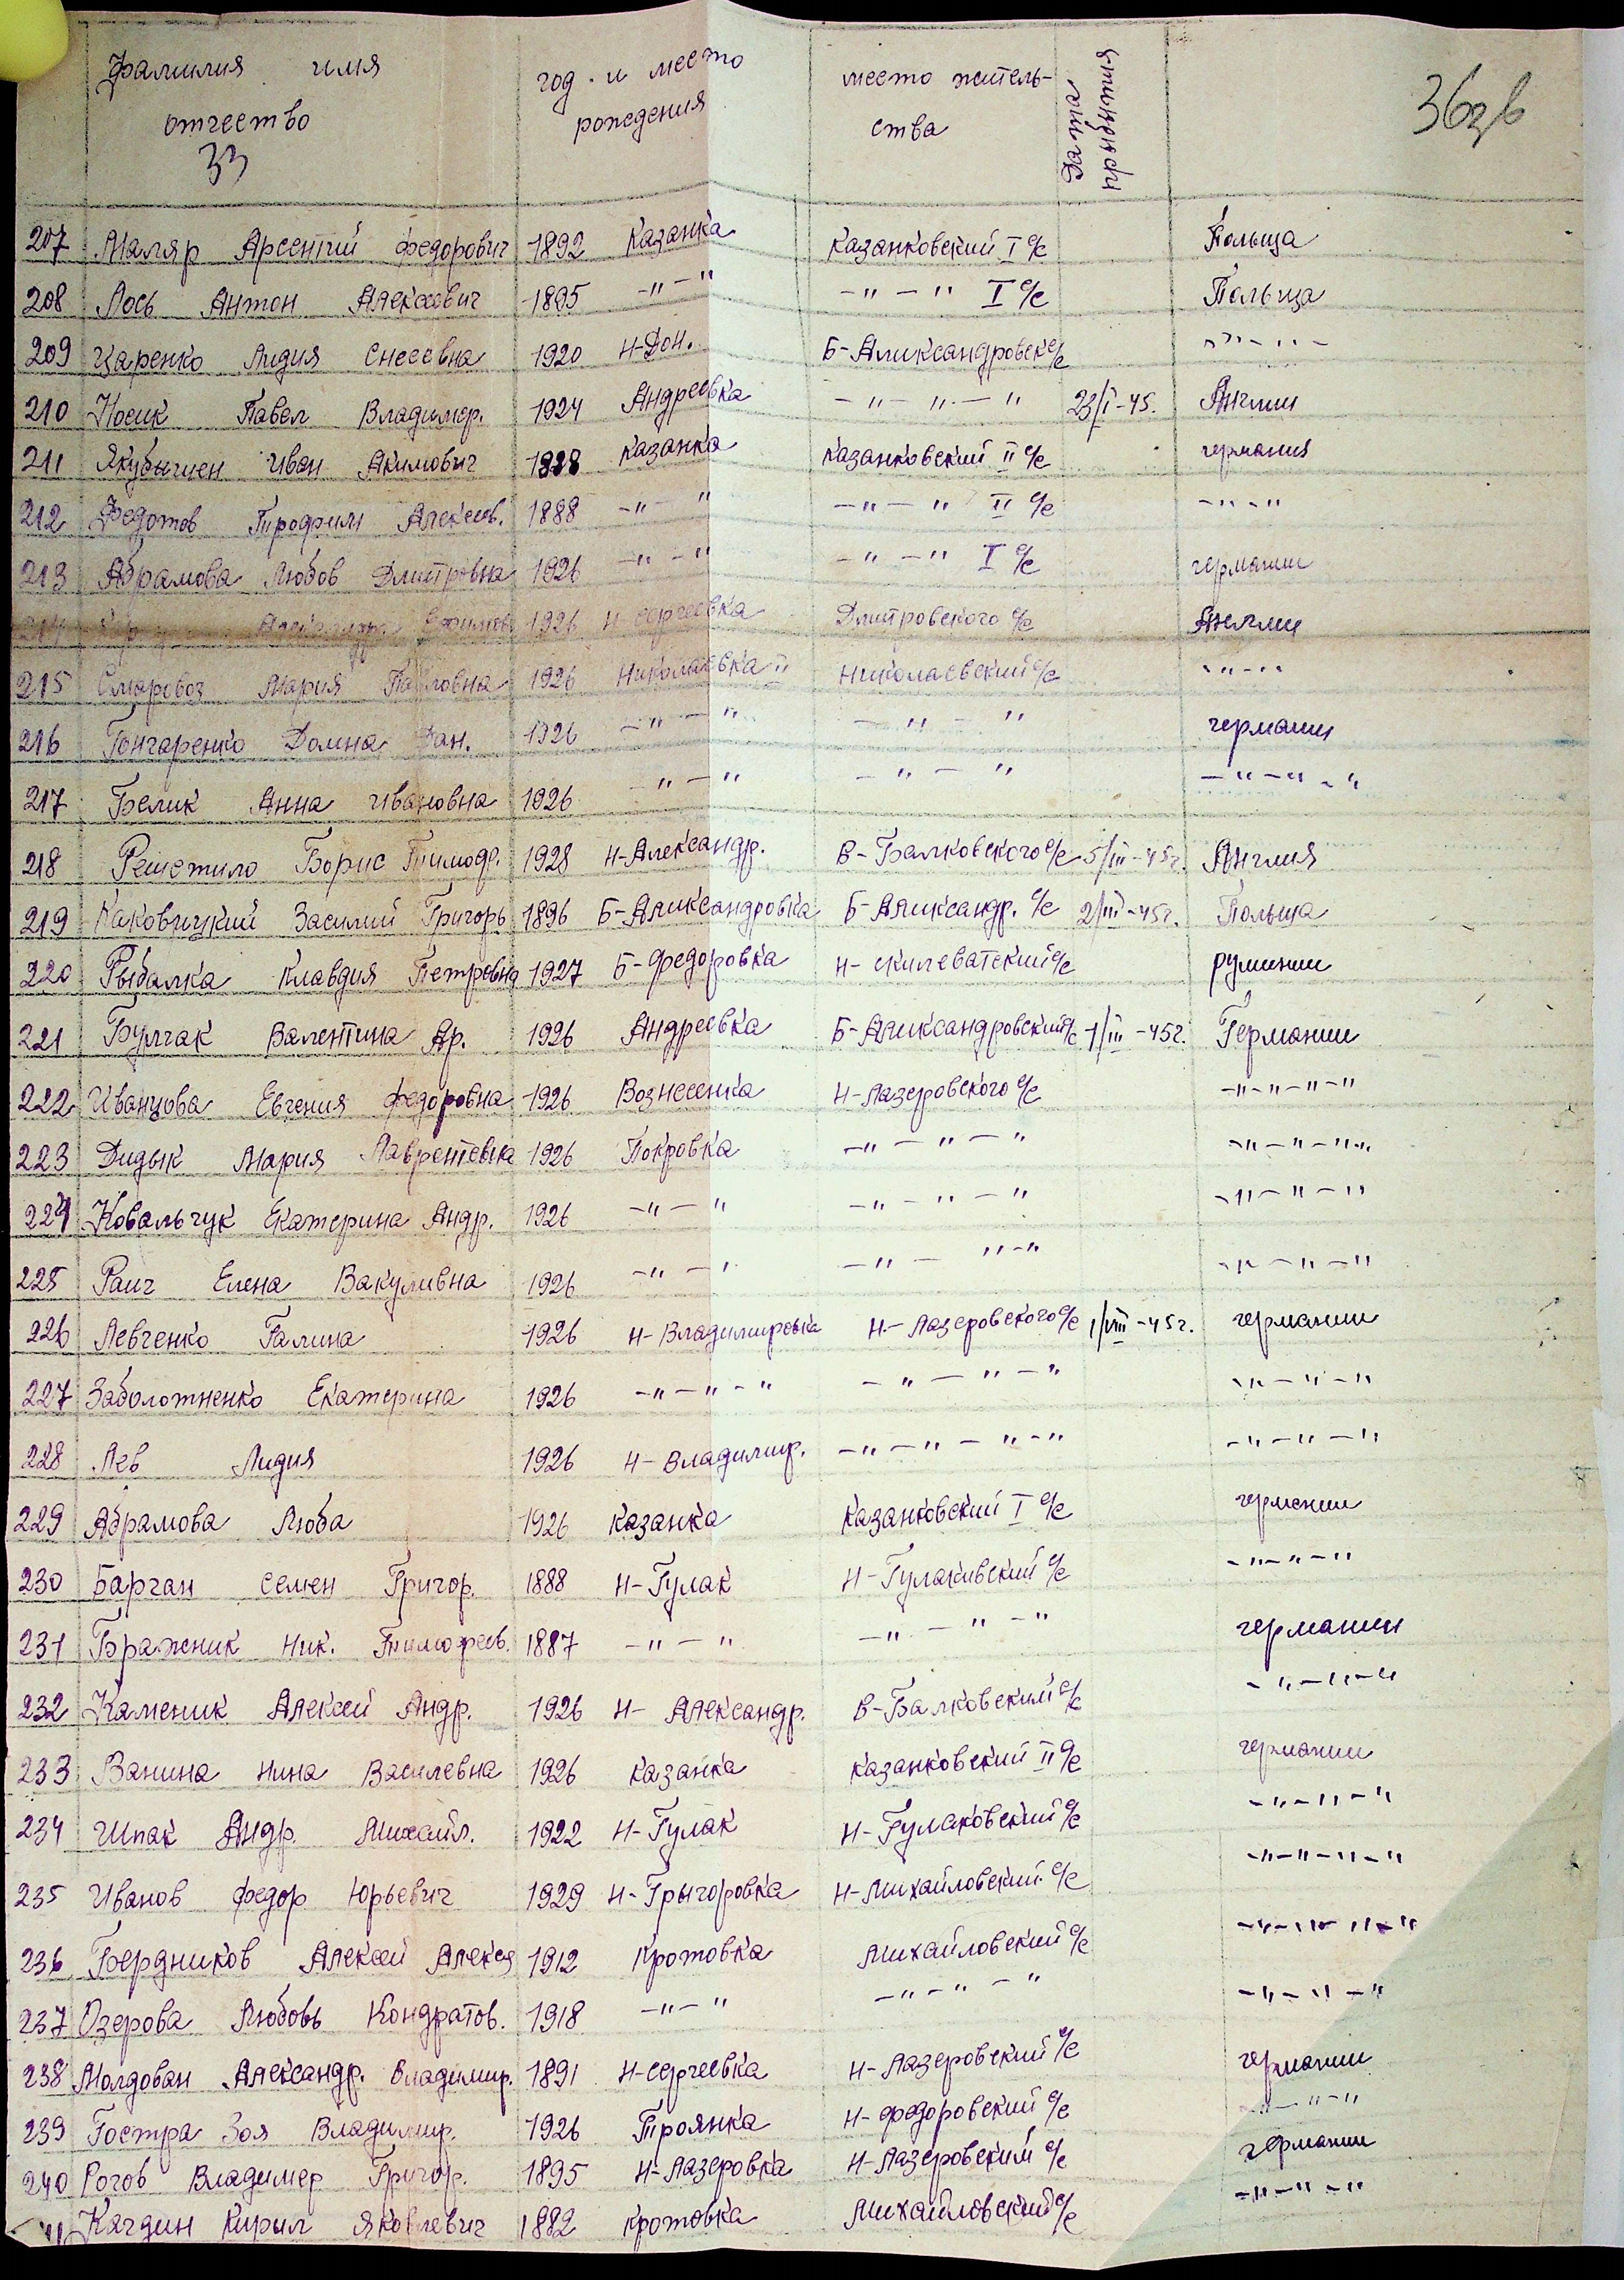 фамилия имя отчество
33
год. и место рождения
место житель-ства
Дата прибытия
36зв
207 Маляр Арсентий Федорович 1892 Казанка Казанковский I с/с Польща
208 Лось Антон Алексеевич 1895 -"-" -"-" I с/с Польща
209 Царенко Лидия Снесевна 1920 Н-Дон. Б-Александровск с/с -"-"-
210 Носик Павел Владимер. 1924 Андреевка -"-"-" 23/I-45. Англии
211 Иван Акимович 1928 Казанка Казанковский II с/с германия
212 Федотов Трофим Алексеев. 1888 -"-" -"-" II с/с -"-"
213 Абрамова Любов Дмитровна 1926 -"-" -"-" I с/с германии
1926 Н-Сергеевка Дмитровского с/с Англии
215 Смаровоз Мария Павловна 1926 Николаевка II Николаевский с/с -"-"
216 Гончаренко Домна Дан. 1926 -"-" -"-" германии
217 Белик Анна Ивановна 1926 -"-" -"-" -"-"-"
218 Решетило Борис Тимоф. 1928 Н-Александр. В-Балковского с/с 5/III-45г. Англия
219 Каковицкий Василий Григорь 1896 Б-Александровка Б-Александр. с/с 2/III-45г. Польща
220 Рыбалка Клавдия Петровна 1927 Б-Федоровка Н-Скилеватский с/с румынии
221 Булгак Валентина Ар. 1926 Андреевка Б-Александровский с/с 1/III-45г. Германии
222 Иванцова Евгения Федоровна 1926 Вознесенка Н-Лазеровского с/с -"-"-"-"
223 Дидык Мария Лаврентевна 1926 Покровка -"-"-" -"-"-"-"
224 Ковальчук Екатерина Андр. 1926 -"-" -"-"-" -"-"-"
225 Раич Елена Вакуливна 1926 -"-" -"-"-" -"-"-"
226 Левченко Галина 1926 Н-Владимировка Н.-Лазеровского с/с 1/VIII-45г. германии
227 Заболотненко Екатерина 1926 -"-"-" -"-"-" -"-"-"
228 Лев Лидия 1926 Н-Владимир. -"-"-"-" -"-"-"
229 Абрамова Люба 1926 Казанка Казанковский I с/с германии
230 Барган Семен Григор. 1888 Н-Гулак Н-Гулаковский с/с -"-"-"
231 Бражник Ник. Тимофеев. 1887 -"-" -"-"-" германии
232 Каменик Алексей Андр. 1926 Н-Александр. В-Балковский с/с -"-"-"
233 Ванина Нина Василевна 1926 Казанка Казанковский II с/с германии
234 Шпак Андр. Михайл. 1922 Н-Гулак Н-Гулаковский с/с -"-"-"
235 Иванов Федор Юрьевич 1929 Н-Григоровка Н-Михайловский с/с -"-"-"-"
236 Бердников Алексей Алексея 1912 Кротовка Михайловский с/с -"-"-"-"
237 Озерова Любовь Кондратов. 1918 -"-" -"-"-" -"-"-"
238 Молдован Александр. Владимир. 1891 Н-Сергеевка Н-Лазеровский с/с германии
239 Гостра Зоя Владимир. 1926 Троянка Н-Федоровский с/с -"-"-"
240 Рогов Владимер Григор. 1895 Н-Лазеровка Н-Лазеровский с/с германии
Качдин Кирил Яковлевич 1882 Кротовка Михайловский с/с -"-"-"